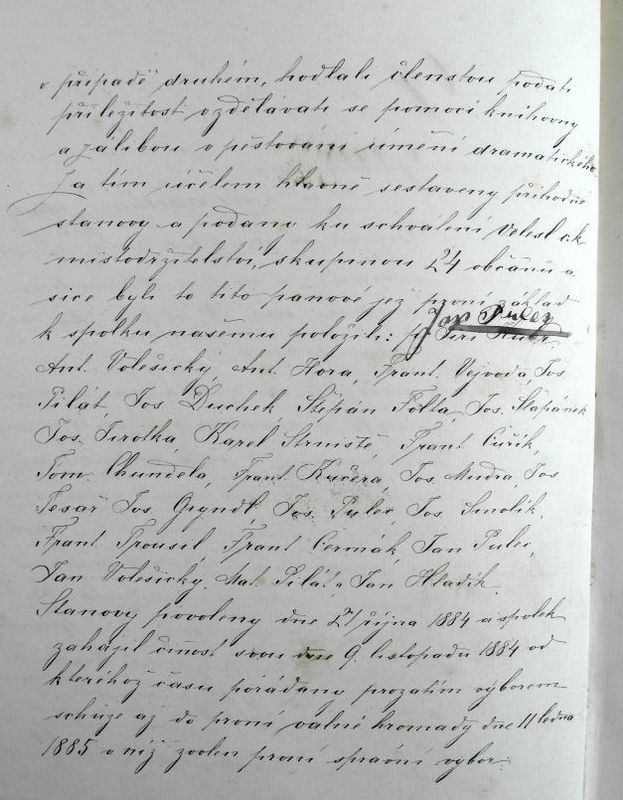 v případě druhém, hodlali členstvu podati
příležitost vzdělávati se pomocí knihovny
a zálibou v pěstování umění dramatického.
Za tím účelem hlavně sestaveny příhodné
stanovy a podany ku schválení velesl. c.k.
místodržitelství, skupinou 24 občanů a
sice byli to tito panové jež první základ
Jan Pulec
k spolku našemu položili: pp. Jiří
Ant. Volešický, Ant. Hora, Frant. Vejvoda, Jos
Pilát, Jos Duchek, Štěpán Folta, Jos. Štěpánek
Jos. Sirotka, Karel Strniště, Frant Cuřík,
Tom. Chundela, Frant Kučera, Jos Mudra, Jos
Tesař Jos Gryndl Jos. Pulec, Jos Smolík,
Frant. Trousil, Frant. Čermák, Jan Pulec,
Jan Volešický, Mat. Pilát a Jan Hladík.
Stanovy povoleny dne 27 října 1884 a spolek
zahájil čiňost svou dne 9. listopadu 1884 od
kteréhož času pořádano prozatím výborem
schůze až do první valné hromady dne 11 ledna
1885 v níž zvolen první správní výbor: